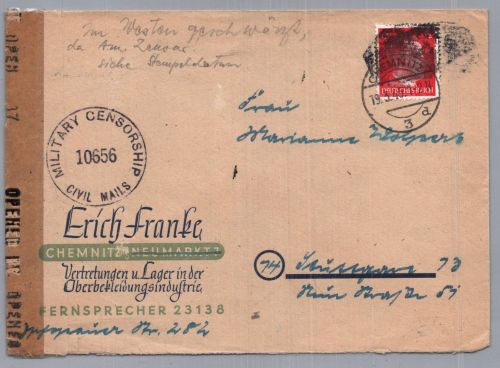 im Westen geschwärzt,
da Am. Zensur
siehe Stempeldatum
OPENED BY
OPENED
MILITARY CENSORSHIP
10656
CIVIL MAILS
CHEMNITZ
19.
3 a
DEUTSCHES REICH
Frau
Marianne
Erich Franke
CHEMNITZ NEUMARKT 7
Vertretungen u. Lager in der
Oberbekleidungsindustrie
FERNSPRECHER 23138
Str. 282
14
Stuttgart 13
Straße 51